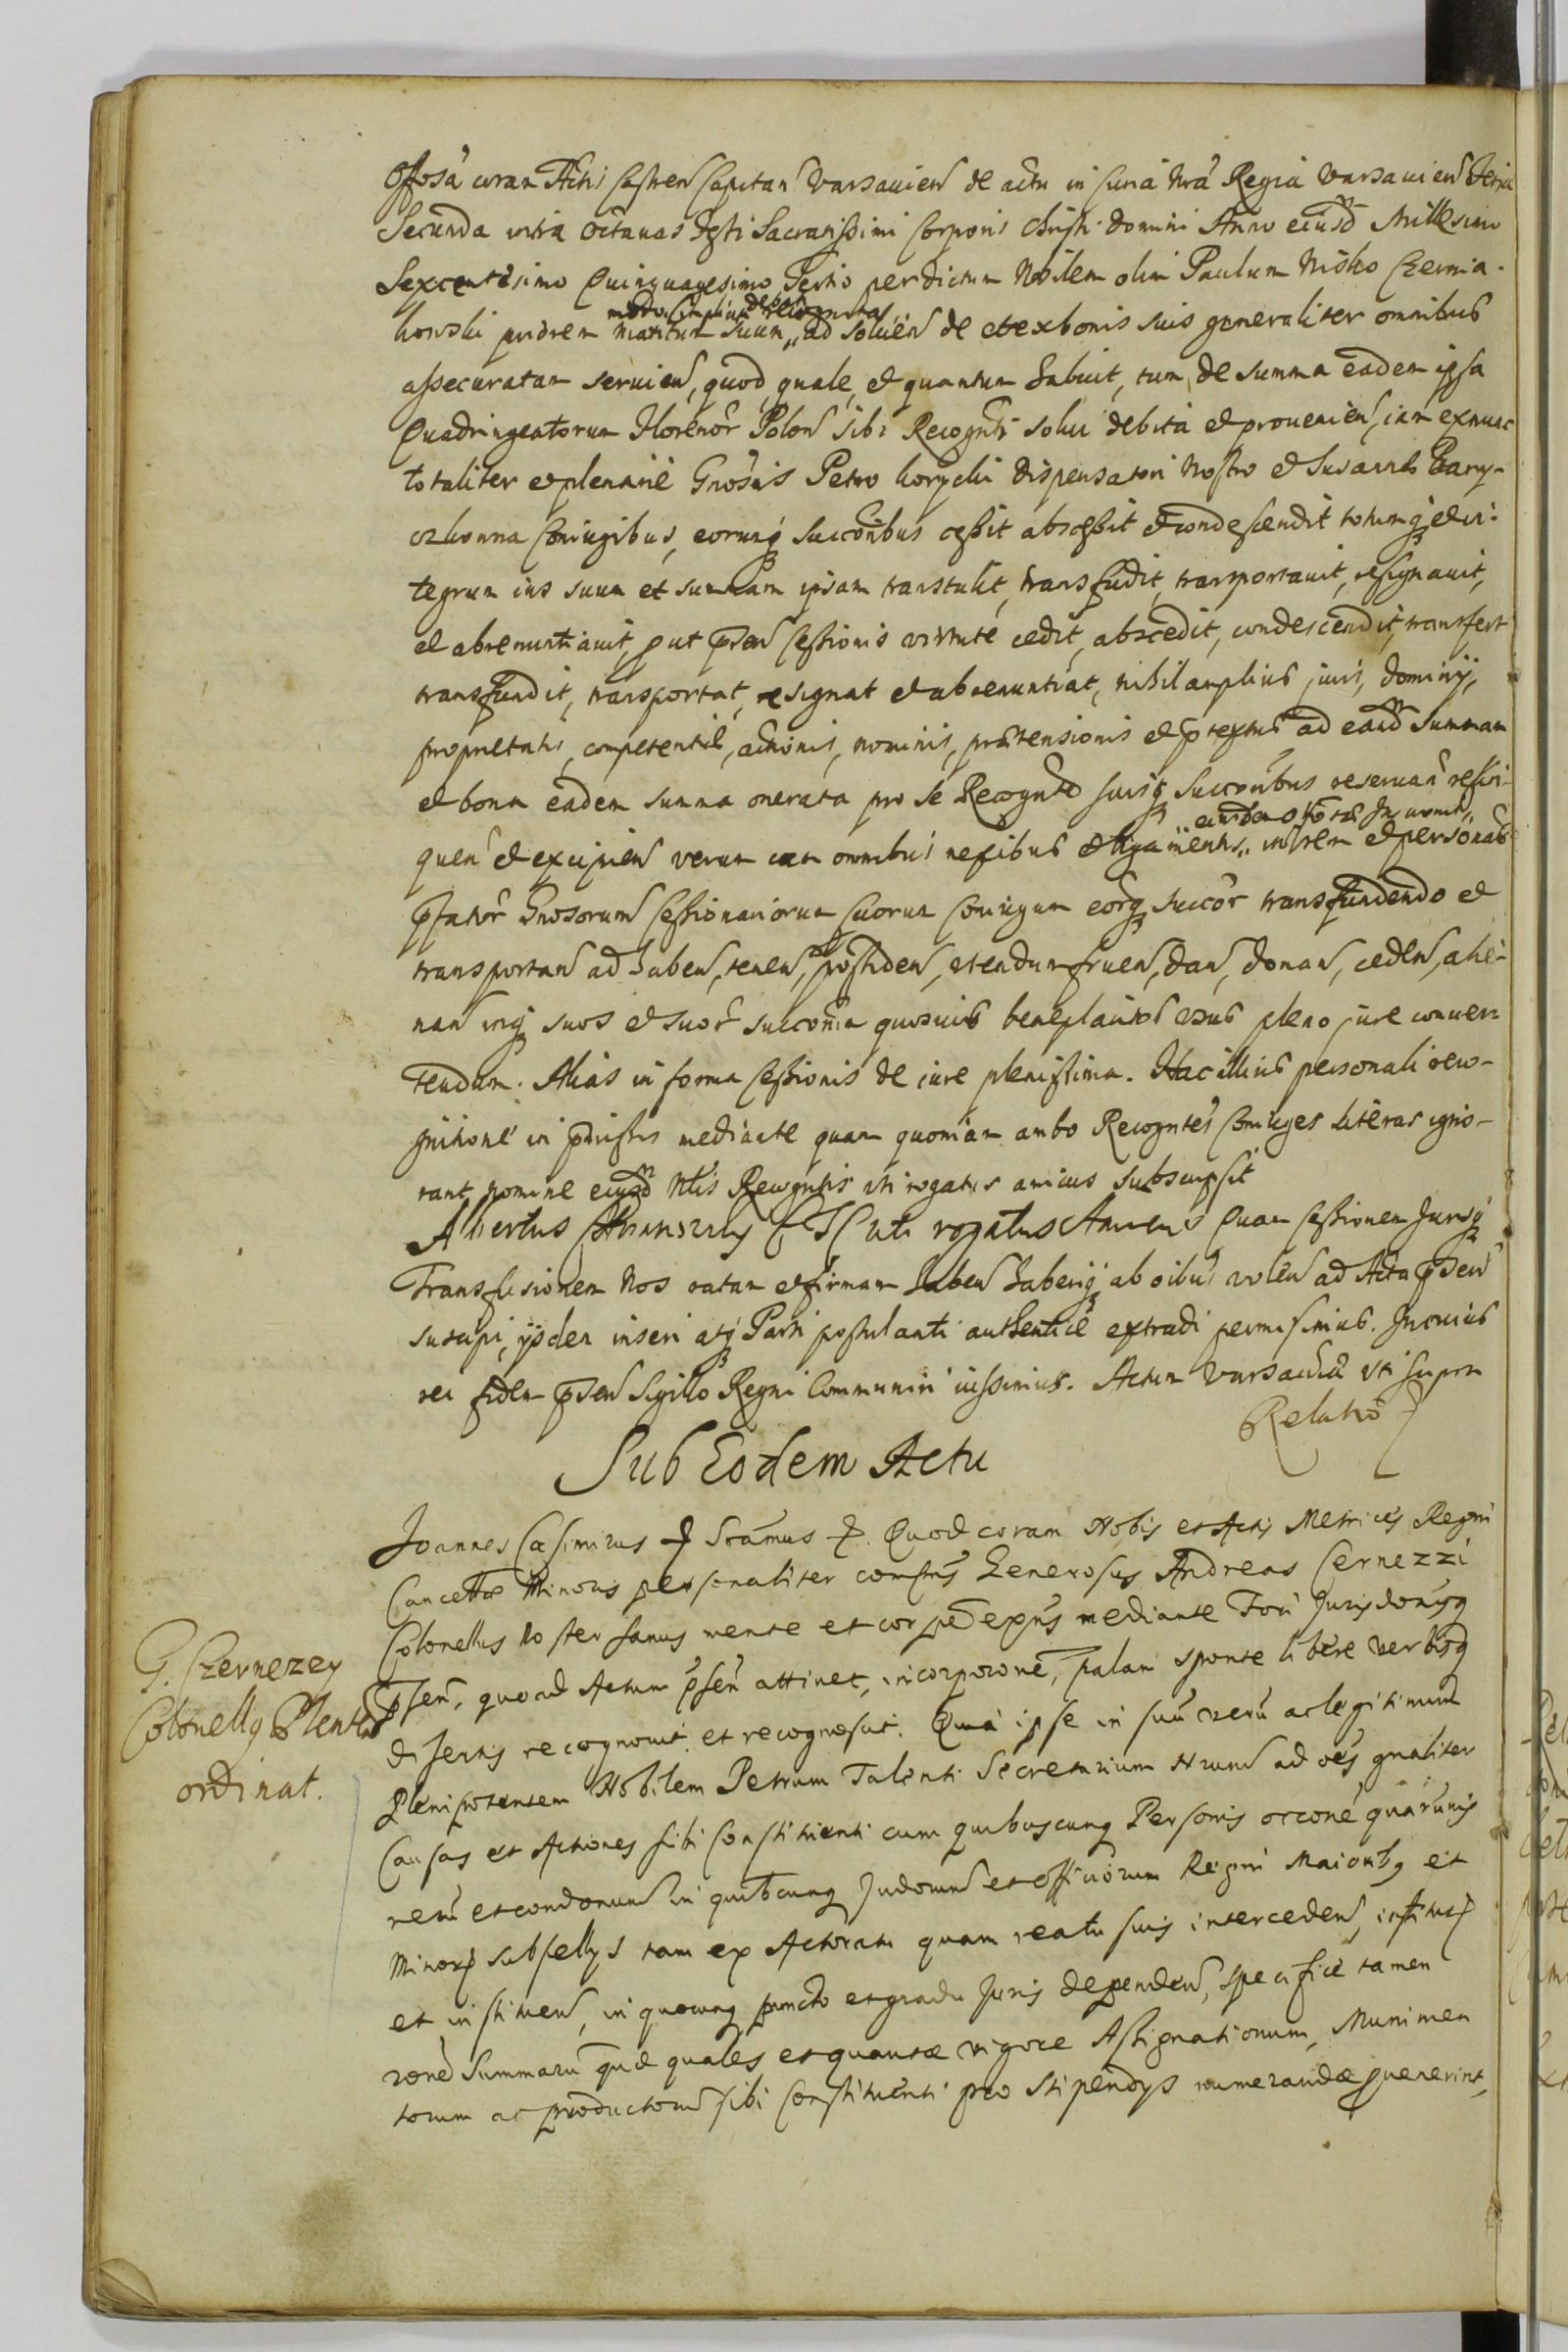 Offosa coram Actis Castren Capitan Varsavien de actu in Curia Nra Regia Varsavien Feria
Secunda intra Octavas Festi Sacratissimi Corporis Christi Domini Anno eiusdm Millesimo
Sexcentesimo Quinquagesimo Tertio per dictum Nobilem olim Paulum Nisko Czernia-
kowski pridem maritum suum ad solven de et ex bonis suis generaliter omnibus
modo simplicis debiti recognita
assecuratam servien, quod, quale, et quantum habuit, tum de summa eadem ipsa
Quadringentorum Florenor Polon sibi Recognti solvi debita et provenien, iam ex nunc
totaliter et plenarie Gnosis Petro Korycki dispensatori Nostro et Susannae Bary-
czkowna Coniugibus, eorumq succoribus cessit abscessit et condescendit totumq et in-
tegrum ius suum et summam ipsam transtulit, transfudit, transportavit, resignavit,
et abrenuntiavit, put psen Cessionis virtute cedit, abscedit, condescendit, transfert
transfundit, transportat, resignat et abrenuntiat, nihil amplius juris, dominij,
proprietatis, competentiae, actionis, nominis, praetensionis et ptextus ad eandm summam
et bona eadem summa onerata pro se Recognte suisq succoribus reservan relin-
quen et excipien verum cum omnibus nexibus et ligamentis in rem et personas
pfator Gnosorum Cessionariorum suorum Coniugum eorq succor transfundendo et
transportan ad haben, tenen, possiden, utendum fruen, dan, donan, ceden, alie-
nan inq suos et suor succorum quosvis beneplacitos usus pleno jure conver-
tendum. Alias in forma Cessionis de iure plenissima. Hac illius personali reco-
gnitione in pmissis mediante quam quoniam ambo Recogntes Coniuges literas igno-
rant, nomine eiusdm Nlis Recogntis uti rogatus amicus subscripsit
Albertus uti rogatus Amicus Quam Cessionem Jurisq
Transfusionem Nos ratam et firmam haben haberiq ab oibus volen ad Acta psen
suscipi, ijsdem inseri atq Parti postulanti authentice extradi permisimus. In cuius
rei fidem psen Sigillo Regni Communiri iussimus. Actum Varsaviae ut supra
Relatio
Sub Eodem Actu
Joannes Casimirus Scamus. Quod coram Nobis et Actis Metrices Regni
Cancellae Minoris personaliter compns Generosus Andreas Cernezzi
Colonellus Noster sanus mente et corpe expns mediante Fori Jurisdonisq
psen, quoad Actum psen attinet, incorporone, palam sponte libere verbisq
disertis recognovit et recognoscit. Quia ipse in suu veru ac legitimum
Plenipotentem Nobilem Petrum Talenti Secretarium Nrum ad oes gnaliter
Causas et Actiones sibi Constituenti cum quibuscunq Personis orcone quarumvis
reru et condonum in quibcunq Judorum et officiorum Regni Maioribq et
Minorq subsellijs tam ex Actoratu quam reatu suis interceden, institutq
et instituen, in quocunq puncto et gradu Juris dependen, specifice tamen
rone Summaru quae quales et quantae vigore Assignationum, Munimen
torum ac productorum sibi Constituenti pro Stipendijs numerandae puenerint,
G. Czernezey
Colonellq Plenten
ordinat.